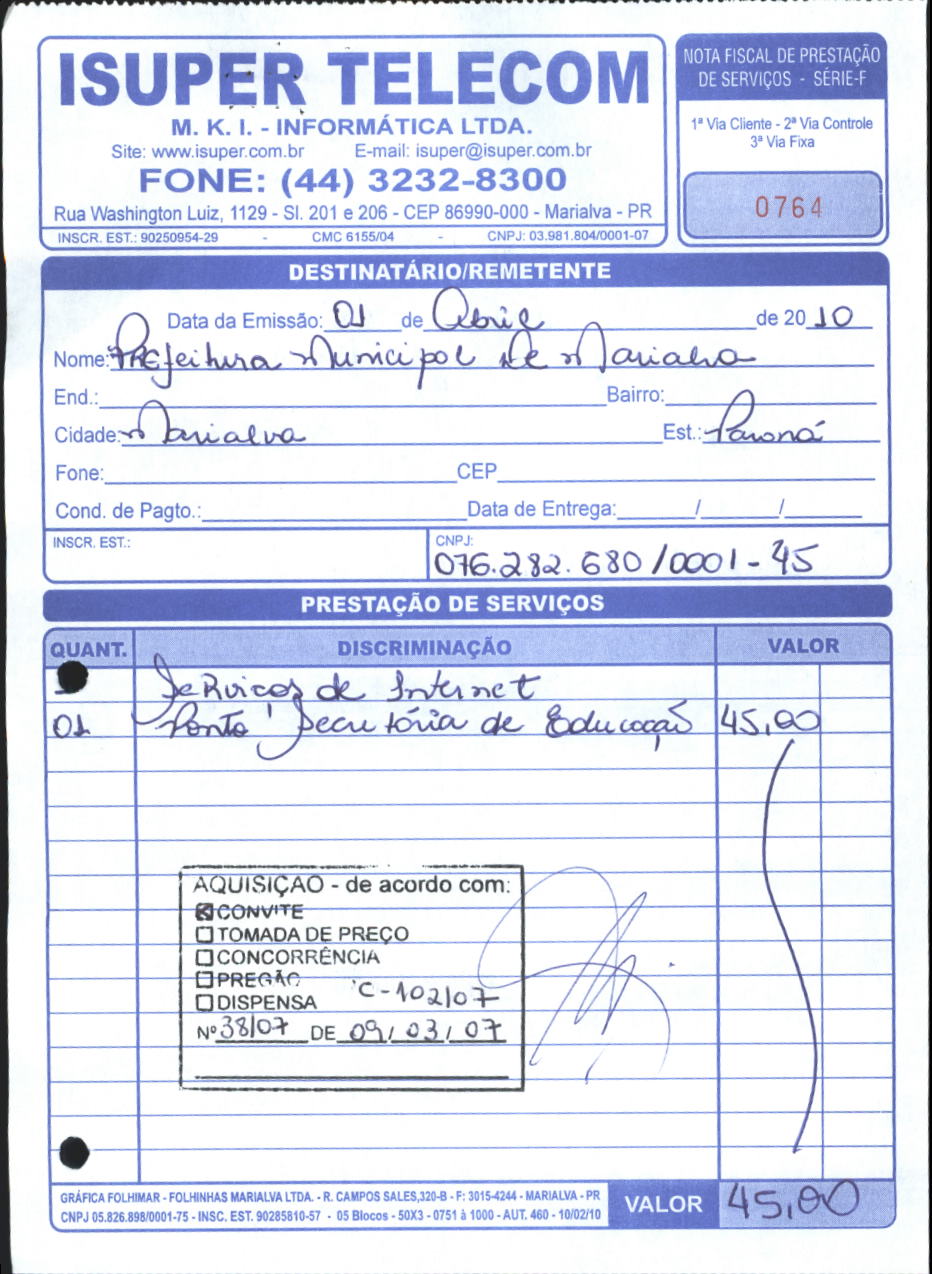 ISUPER TELECOM
M. K. I. - INFORMÁTICA LTDA.
Site: www.isuper.com.br E-mail: isuper@isuper.com.br
FONE: (44) 3232-8300
Rua Washington Luiz, 1129 - Sl. 201 e 206 - CEP 86990-000 - Marialva - PR
INSCR. EST.: 90250954-29 - CMC 6155/04 - CNPJ: 03.981.804/0001-07
NOTA FISCAL DE PRESTAÇÃO
DE SERVIÇOS - SÉRIE-F
1ª Via Cliente - 2ª Via Controle
3ª Via Fixa
0764
DESTINATÁRIO/REMETENTE
Data da Emissão: 01 de Abril de 2010
Nome: Prefeitura Municipal De Marialva
End.: Bairro:
Cidade: Marialva Est.: Paraná
Fone: CEP
Cond. de Pagto.: Data de Entrega: / /
INSCR. EST.:
CNPJ: 076.282.680/0001-45
PRESTAÇÃO DE SERVIÇOS
QUANT. DISCRIMINAÇÃO VALOR
Serviços de Internet
01 Ponto Secretória de Educação 45,00
AQUISIÇÃO - de acordo com:
CONVITE
TOMADA DE PREÇO
CONCORRÊNCIA
PREGÃO
DISPENSA C-102/07
Nº 38/07 DE 09/03/07
GRÁFICA FOLHIMAR - FOLHINHAS MARIALVA LTDA. - R. CAMPOS SALES,320-B - F: 3015-4244 - MARIALVA - PR
CNPJ 05.826.898/0001-75 - INSC. EST. 90285810-57 - 05 Blocos - 50X3 - 0751 à 1000 - AUT. 460 - 10/02/10
VALOR 45,00